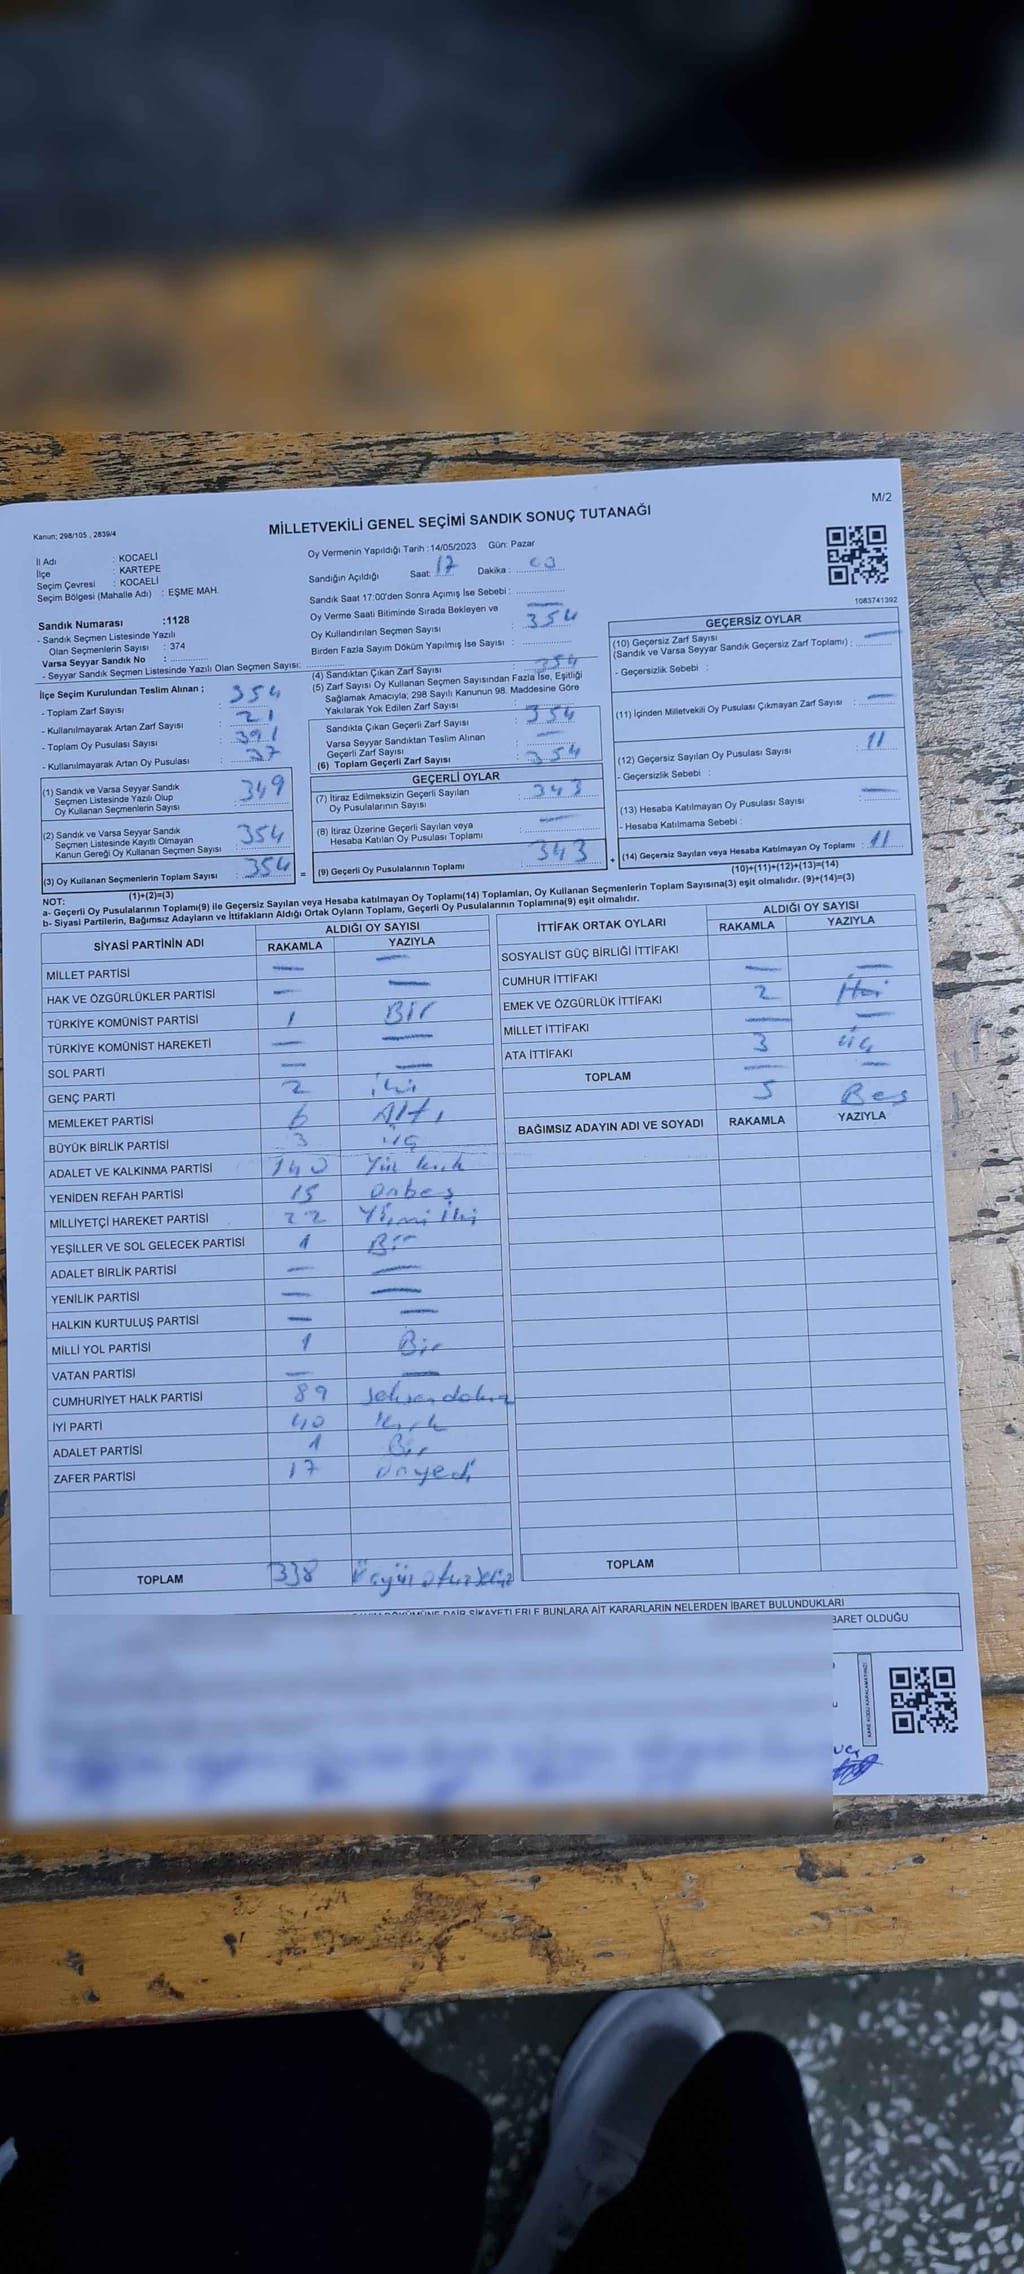 M/2
Kanun; 298/105 , 2839/4
MİLLETVEKİLİ GENEL SEÇİMİ SANDIK SONUÇ TUTANAĞI
İl Adı : KOCAELİ
İlçe : KARTEPE
Seçim Çevresi : KOCAELİ
Seçim Bölgesi (Mahalle Adı) : EŞME MAH.
Oy Vermenin Yapıldığı Tarih :14/05/2023 Gün: Pazar
Sandığın Açıldığı Saat: 17 Dakika : 00
Sandık Saat 17:00'den Sonra Açımış İse Sebebi :
Oy Verme Saati Bitiminde Sırada Bekleyen ve
Oy Kullandırılan Seçmen Sayısı : 354
Birden Fazla Sayım Döküm Yapılmış İse Sayısı :
1083741392
Sandık Numarası :1128
- Sandık Seçmen Listesinde Yazılı
Olan Seçmenlerin Sayısı : 374
Varsa Seyyar Sandık No :
- Seyyar Sandık Seçmen Listesinde Yazılı Olan Seçmen Sayısı:
İlçe Seçim Kurulundan Teslim Alınan ;
- Toplam Zarf Sayısı : 354
- Kullanılmayarak Artan Zarf Sayısı : 21
- Toplam Oy Pusulası Sayısı : 391
- Kullanılmayarak Artan Oy Pusulası : 37
(1) Sandık ve Varsa Seyyar Sandık
Seçmen Listesinde Yazılı Olup
Oy Kullanan Seçmenlerin Sayısı : 349
(2) Sandık ve Varsa Seyyar Sandık
Seçmen Listesinde Kayıtlı Olmayan
Kanun Gereği Oy Kullanan Seçmen Sayısı : 354
(3) Oy Kullanan Seçmenlerin Toplam Sayısı : 354
(1)+(2)=(3)
(4) Sandıktan Çıkan Zarf Sayısı : 354
(5) Zarf Sayısı Oy Kullanan Seçmen Sayısından Fazla İse, Eşitliği
Sağlamak Amacıyla; 298 Sayılı Kanunun 98. Maddesine Göre
Yakılarak Yok Edilen Zarf Sayısı :
Sandıkta Çıkan Geçerli Zarf Sayısı : 354
Varsa Seyyar Sandıktan Teslim Alınan
Geçerli Zarf Sayısı : —
(6) Toplam Geçerli Zarf Sayısı : 354
GEÇERLİ OYLAR
(7) İtiraz Edilmeksizin Geçerli Sayılan
Oy Pusulalarının Sayısı : 343
(8) İtiraz Üzerine Geçerli Sayılan veya
Hesaba Katılan Oy Pusulası Toplamı : —
(9) Geçerli Oy Pusulalarının Toplamı : 343
GEÇERSİZ OYLAR
(10) Geçersiz Zarf Sayısı
(Sandık ve Varsa Seyyar Sandık Geçersiz Zarf Toplamı) : —
- Geçersizlik Sebebi :
(11) İçinden Milletvekili Oy Pusulası Çıkmayan Zarf Sayısı : —
(12) Geçersiz Sayılan Oy Pusulası Sayısı : 11
- Geçersizlik Sebebi :
(13) Hesaba Katılmayan Oy Pusulası Sayısı : —
- Hesaba Katılmama Sebebi :
(14) Geçersiz Sayılan veya Hesaba Katılmayan Oy Toplamı : 11
(10)+(11)+(12)+(13)=(14)
NOT:
a- Geçerli Oy Pusulalarının Toplamı(9) ile Geçersiz Sayılan veya Hesaba katılmayan Oy Toplamı(14) Toplamları, Oy Kullanan Seçmenlerin Toplam Sayısına(3) eşit olmalıdır. (9)+(14)=(3)
b- Siyasi Partilerin, Bağımsız Adayların ve İttifakların Aldığı Ortak Oyların Toplamı, Geçerli Oy Pusulalarının Toplamına(9) eşit olmalıdır.
SİYASİ PARTİNİN ADI ALDIĞI OY SAYISI
RAKAMLA YAZIYLA
MİLLET PARTİSİ — —
HAK VE ÖZGÜRLÜKLER PARTİSİ — —
TÜRKİYE KOMÜNİST PARTİSİ 1 Bir
TÜRKİYE KOMÜNİST HAREKETİ — —
SOL PARTİ — —
GENÇ PARTİ 2 iki
MEMLEKET PARTİSİ 6 Altı
BÜYÜK BİRLİK PARTİSİ 3 üç
ADALET VE KALKINMA PARTİSİ 140 Yüz kırk
YENİDEN REFAH PARTİSİ 15 onbeş
MİLLİYETÇİ HAREKET PARTİSİ 22 Yirmi iki
YEŞİLLER VE SOL GELECEK PARTİSİ 1 Bir
ADALET BİRLİK PARTİSİ — —
YENİLİK PARTİSİ — —
HALKIN KURTULUŞ PARTİSİ — —
MİLLİ YOL PARTİSİ 1 Bir
VATAN PARTİSİ — —
CUMHURİYET HALK PARTİSİ 89 seksendokuz
İYİ PARTİ 40 kırk
ADALET PARTİSİ 1 Bir
ZAFER PARTİSİ 17 onyedi
TOPLAM 338 Üçyüz otuzsekiz
İTTİFAK ORTAK OYLARI ALDIĞI OY SAYISI
RAKAMLA YAZIYLA
SOSYALİST GÜÇ BİRLİĞİ İTTİFAKI — —
CUMHUR İTTİFAKI 2 İki
EMEK VE ÖZGÜRLÜK İTTİFAKI — —
MİLLET İTTİFAKI 3 üç
ATA İTTİFAKI — —
TOPLAM 5 Beş
BAĞIMSIZ ADAYIN ADI VE SOYADI RAKAMLA YAZIYLA
TOPLAM
DAİR ŞİKAYETLERLE BUNLARA AİT KARARLARIN NELERDEN İBARET BULUNDUKLARI
İBARET OLDUĞU
KARE KODU KARALAMAYINIZ!